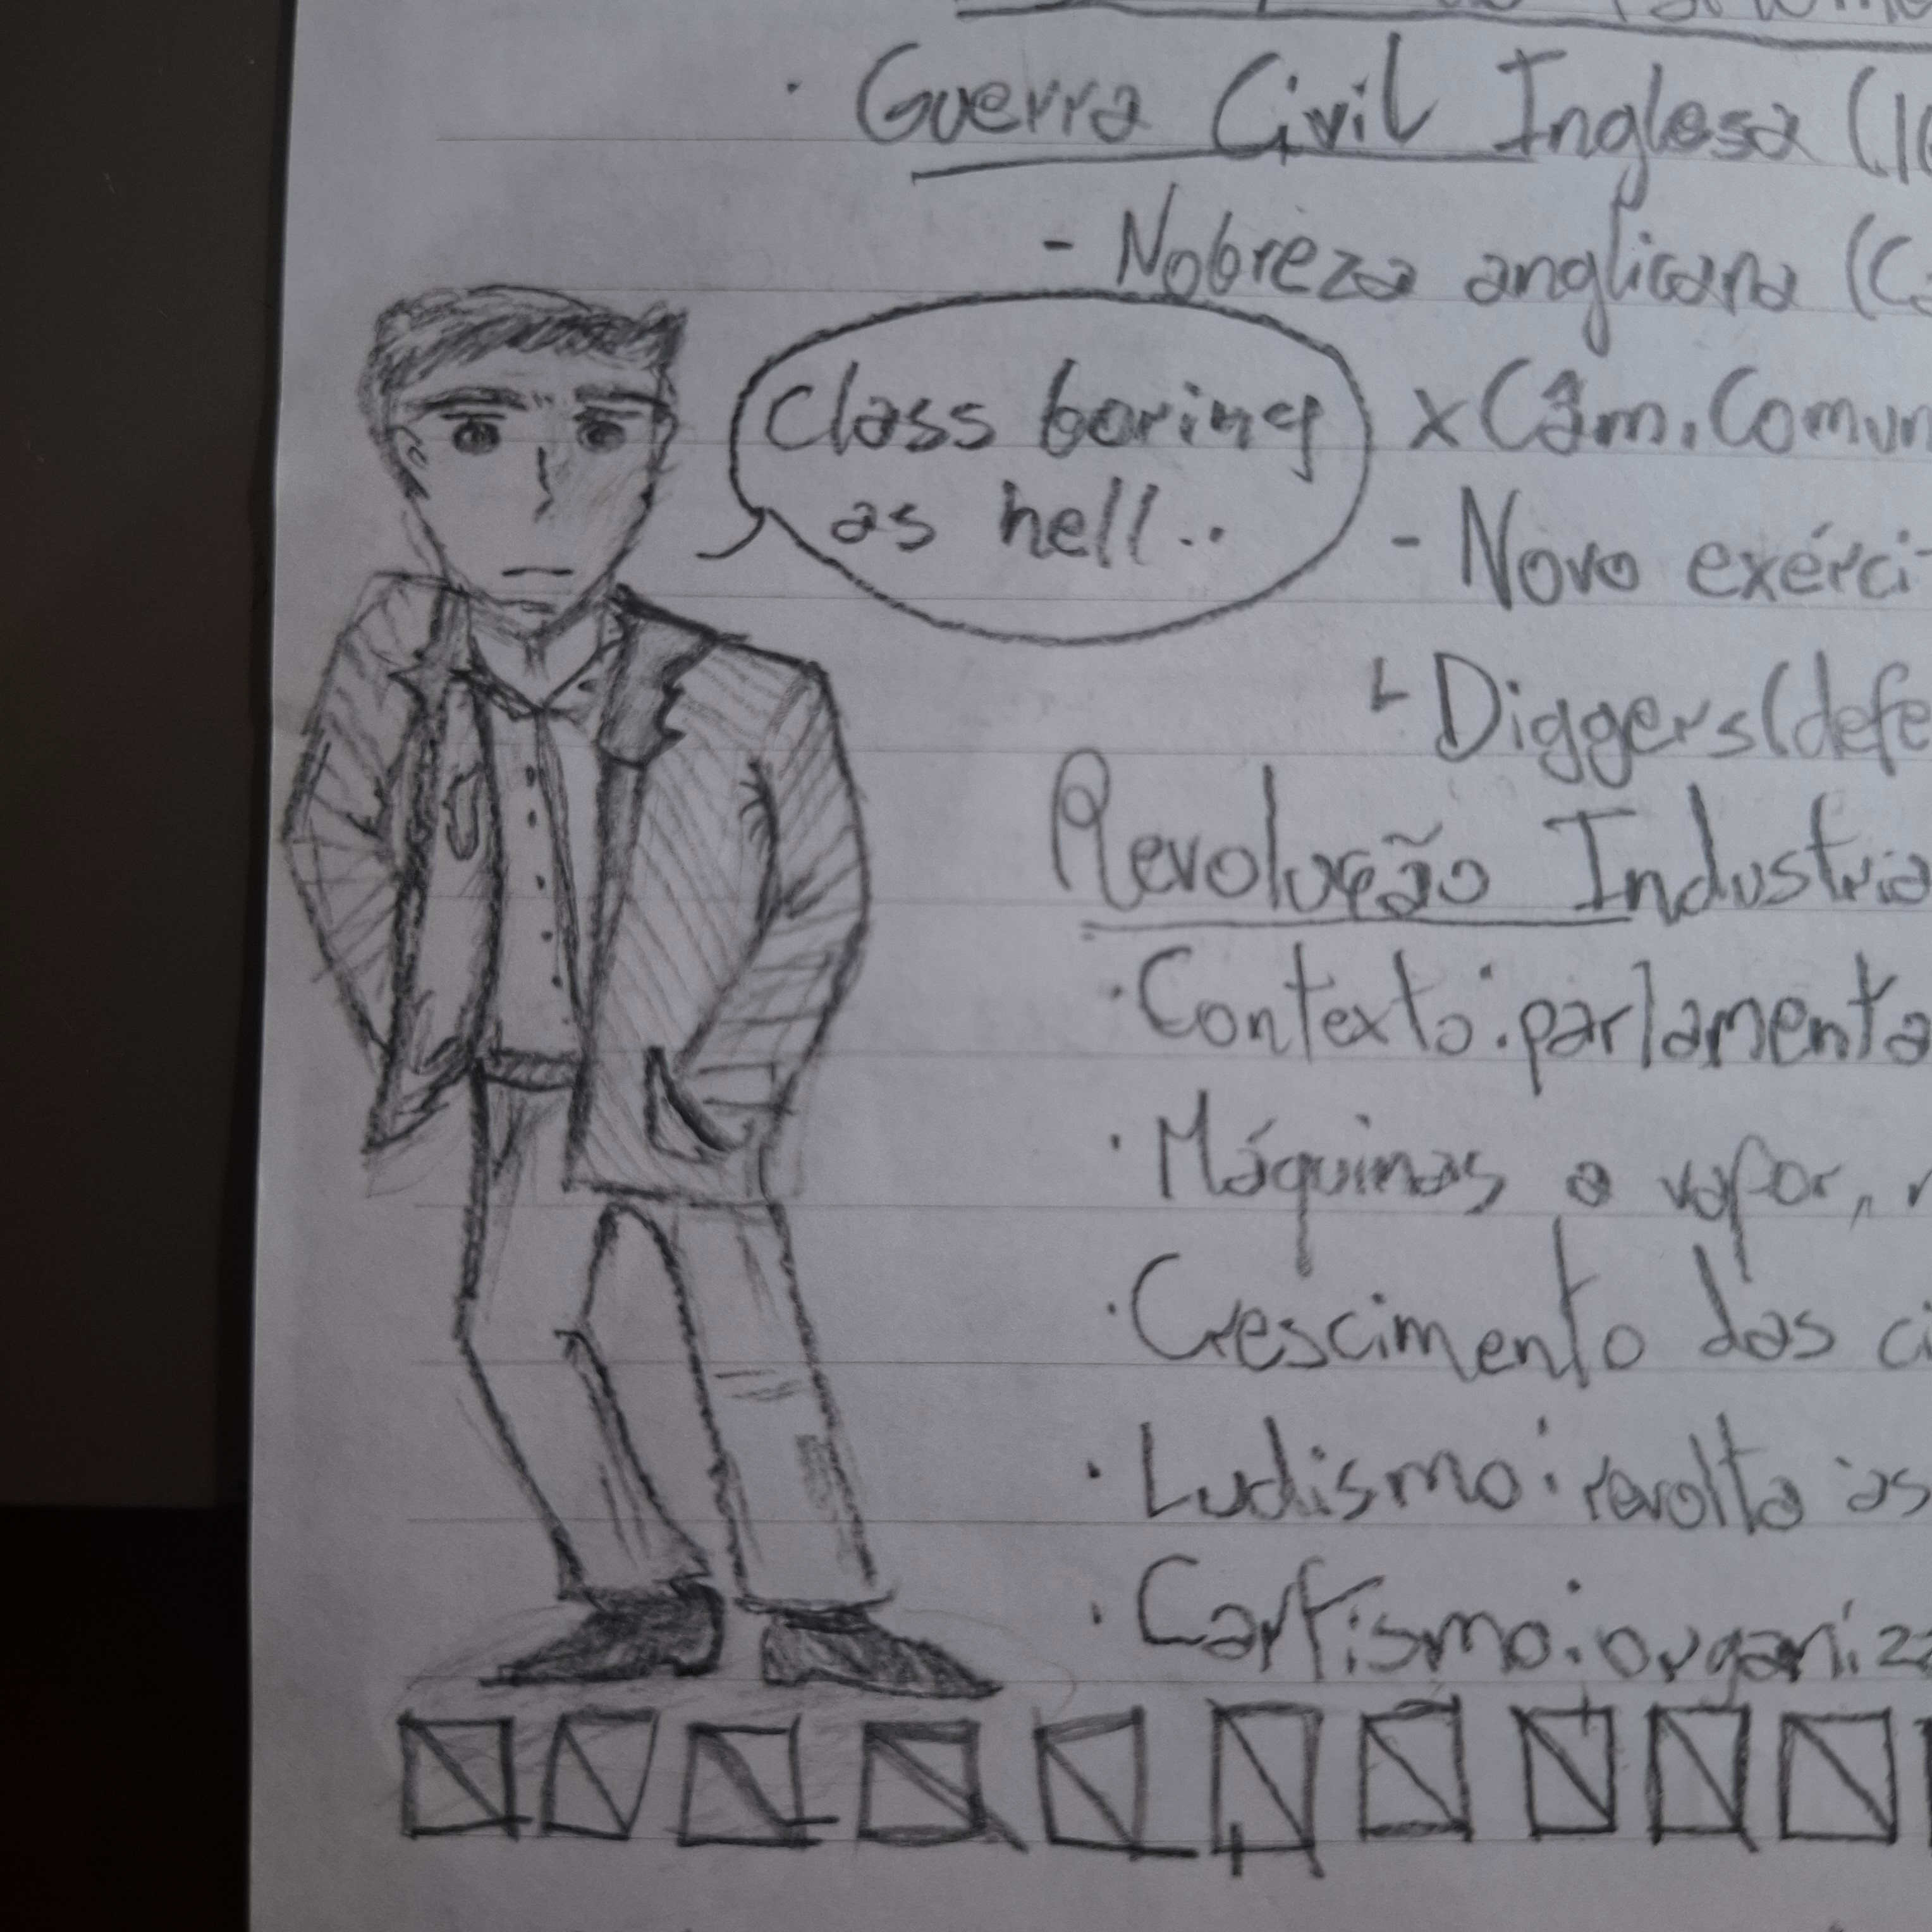 · Guerra Civil Inglesa (16
- Nobreza anglicana (Ca
Class boring
as hell..
x Câm. Comun
- Novo exérci
└ Diggers (defe
Revolução Industria
· Contexto: parlamenta
· Máquinas a vapor,
· Crescimento das ci
· Ludismo: revolta às
· Cartismo: organiza